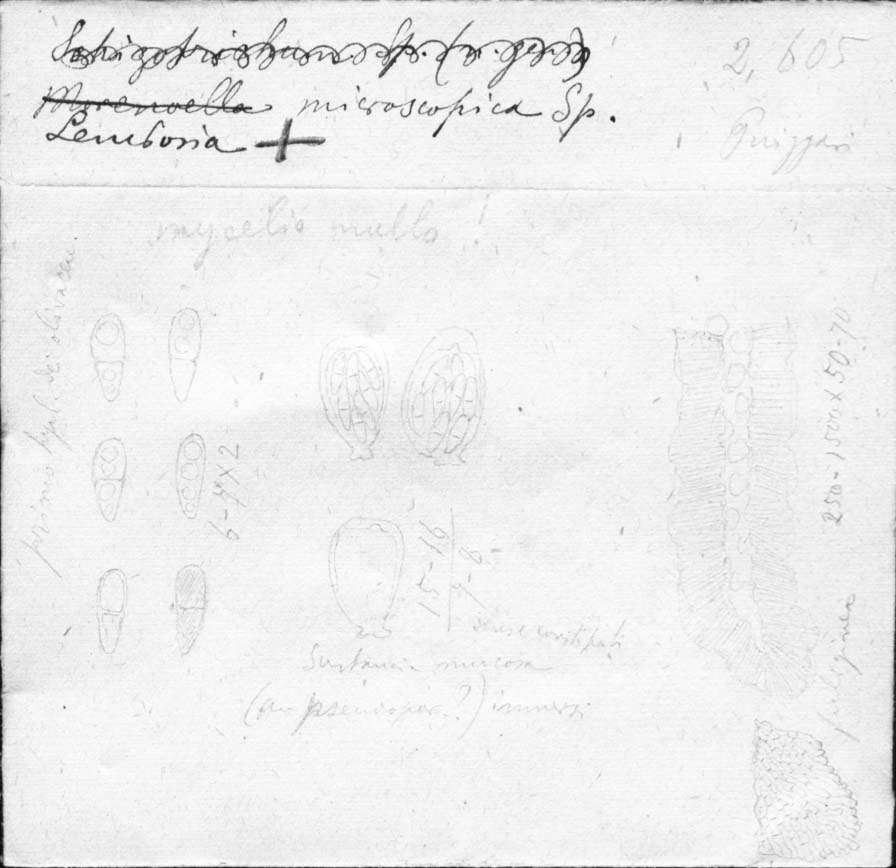 Schizothrixum Sp. (n. gen.)
2,605
Morenoella microscopica Sp.
Lembosia +
Puiggari
mycelio nullo !
primo hyal. dein olivaceae.
6-7 X 2
15-16
7-8
250-1500 X 50-70
dense constipati
Sustancia mucosa
(an pseudopar.?) immersi
fuliginea